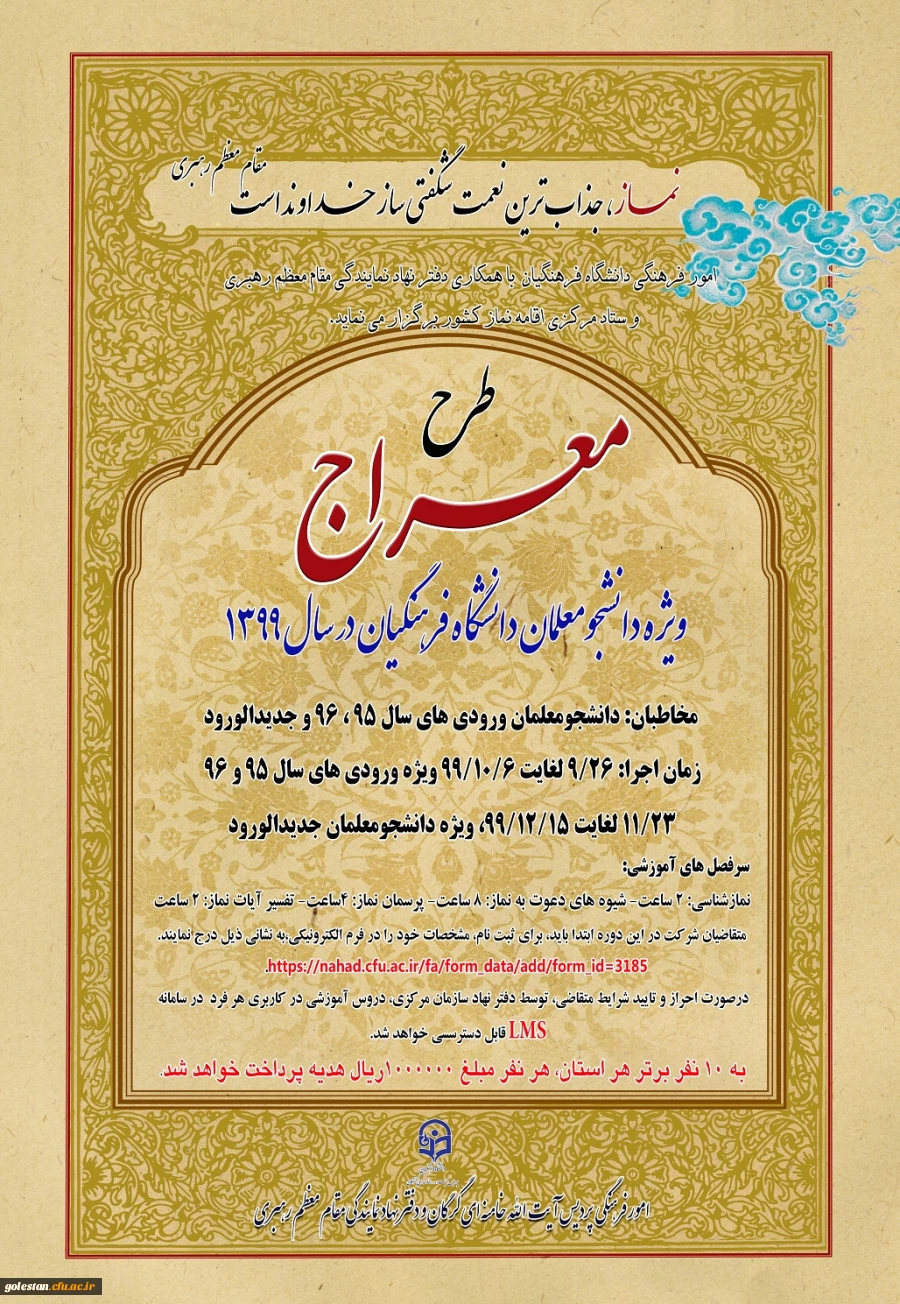 مقام معظم رهبری
نماز، جذاب ترین نعمت شگفتی ساز خداوند است
امور فرهنگی دانشگاه فرهنگیان با همکاری دفتر نهاد نمایندگی مقام معظم رهبری
و ستاد مرکزی اقامه نماز کشور برگزار می نماید.
طرح
معراج
ویژه دانشجو معلمان دانشگاه فرهنگیان در سال ۱۳۹۹
مخاطبان: دانشجومعلمان ورودی های سال ۹۵ ، ۹۶ و جدیدالورود
زمان اجرا: ۹/۲۶ لغایت ۹۹/۱۰/۶ ویژه ورودی های سال ۹۵ و ۹۶
۱۱/۲۳ لغایت ۹۹/۱۲/۱۵، ویژه دانشجومعلمان جدیدالورود
سرفصل های آموزشی:
نمازشناسی: ۲ ساعت- شیوه های دعوت به نماز: ۸ ساعت- پرسمان نماز: ۴ساعت- تفسیر آیات نماز: ۲ ساعت
متقاضیان شرکت در این دوره ابتدا باید، برای ثبت نام، مشخصات خود را در فرم الکترونیکی،به نشانی ذیل درج نمایند.
https://nahad.cfu.ac.ir/fa/form_data/add/form_id=3185.
درصورت احراز و تایید شرایط متقاضی، توسط دفتر نهاد سازمان مرکزی، دروس آموزشی در کاربری هر فرد در سامانه
LMS قابل دسترسسی خواهد شد.
به ۱۰ نفر برتر هر استان، هر نفر مبلغ ۱۰۰۰۰۰۰ریال هدیه پرداخت خواهد شد.
امور فرهنگی پردیس آیت الله خامنه ای گرگان و دفتر نهاد نمایندگی مقام معظم رهبری
golestan.cfu.ac.ir